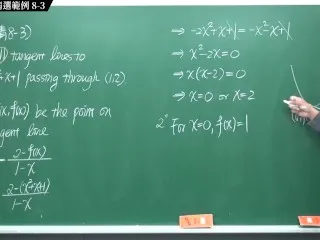 選範例 8-3
8-3)
tangent lines to
+x+1 passing through (1,2).
(x,f(x)) be the point on
gent line
2-f(x)
1-x
2-(x²+x+1)
1-x
⇒ -2x²+x+1=-x²+x+1
⇒ x²-2x=0
⇒ x(x-2)=0
⇒ x=0 or x=2
2° For x=0, f(x)=1